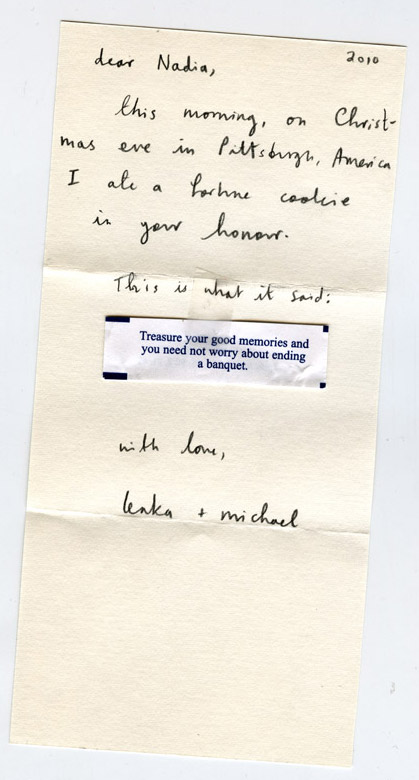 2010
dear Nadia,
this morning, on Christ-
mas eve in Pittsburgh, America
I ate a fortune cookie
in your honour.
This is what it said:
Treasure your good memories and
you need not worry about ending
a banquet.
with love,
lenka + michael